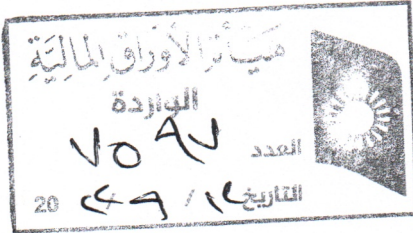 هيئة الأوراق المالية
الواردة
العدد ٧٥٩٧
التاريخ / 20